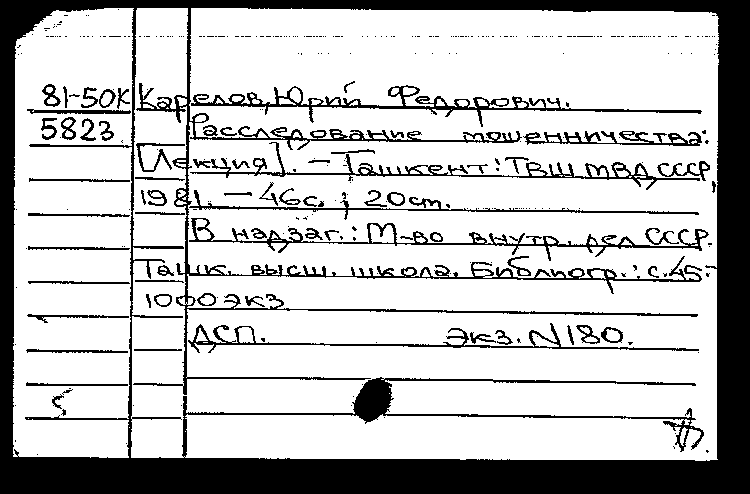 81-50К Карелов, Юрий Федорович.
5823 Расследование мошенничества:
[Лекция]. – Ташкент: ТВШ МВД СССР,
1981. – 46с. ; 20 см.
В надзаг.: М-во внутр. дел СССР.
Ташк. высш. школа. Библиогр.: с.45-
1000 экз.
ДСП. Экз. N 180.